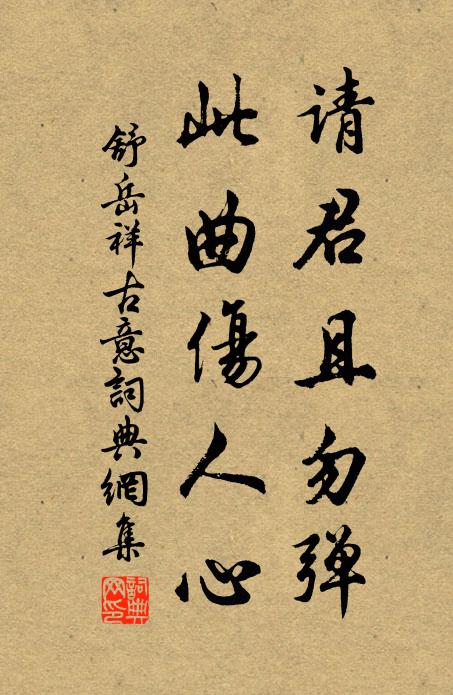 请君且勿弹
此曲傷人心
舒岳祥古意詞典網集